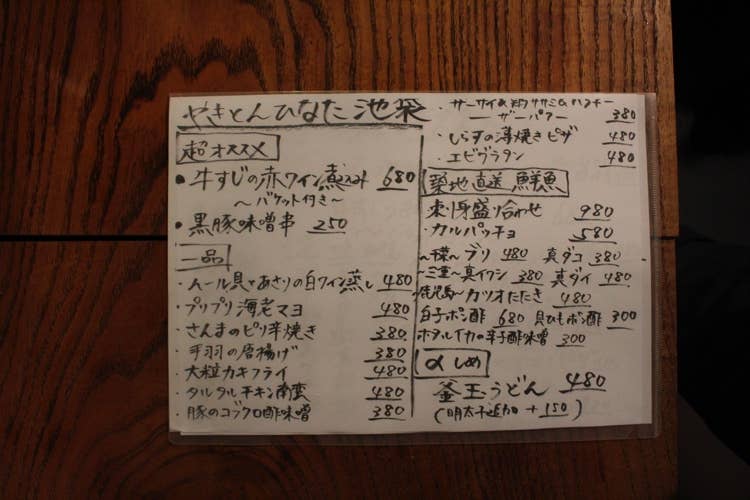 やきとんひなた池袋
超オススメ
・牛すじの赤ワイン煮込み 680
～バケット付き～
・黒豚味噌串 250
一品
・ムール貝とあさりの白ワイン蒸し 480
・プリプリ海老マヨ 480
・さんまのピリ辛焼き 380
・手羽の唐揚げ 380
・大粒カキフライ 480
・タルタルチキン南蛮 480
・豚のコブクロ酢味噌 380
380
・しらすの薄焼きピザ 480
・エビグラタン 480
築地直送 鮮魚
・刺身盛り合わせ 980
・カルパッチョ 580
～千葉～ブリ 480 真ダコ 380
～三重～真イワシ 380 真ダイ 480
鹿児島～カツオたたき 480
白子ポン酢 680 貝ひもポン酢 300
ホタルイカの辛子酢味噌 300
〆しめ
釜玉うどん 480
(明太子追加 +150)